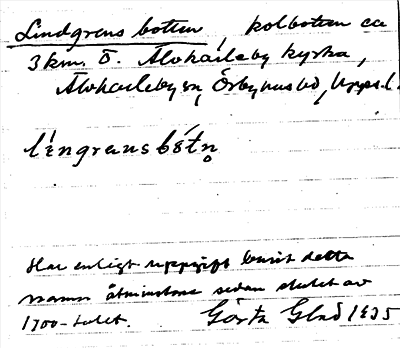 Lindgrens botten, kolbotten ca
3 km. Ö. Älvkarleby kyrka,
Älvkarleby sn, Örbyhus hd, Upps. l.
líŋgrans bótn̥
Har enligt uppgift burit detta
namn åtminstone sedan slutet av
1700-talet. Gösta Glad 1935